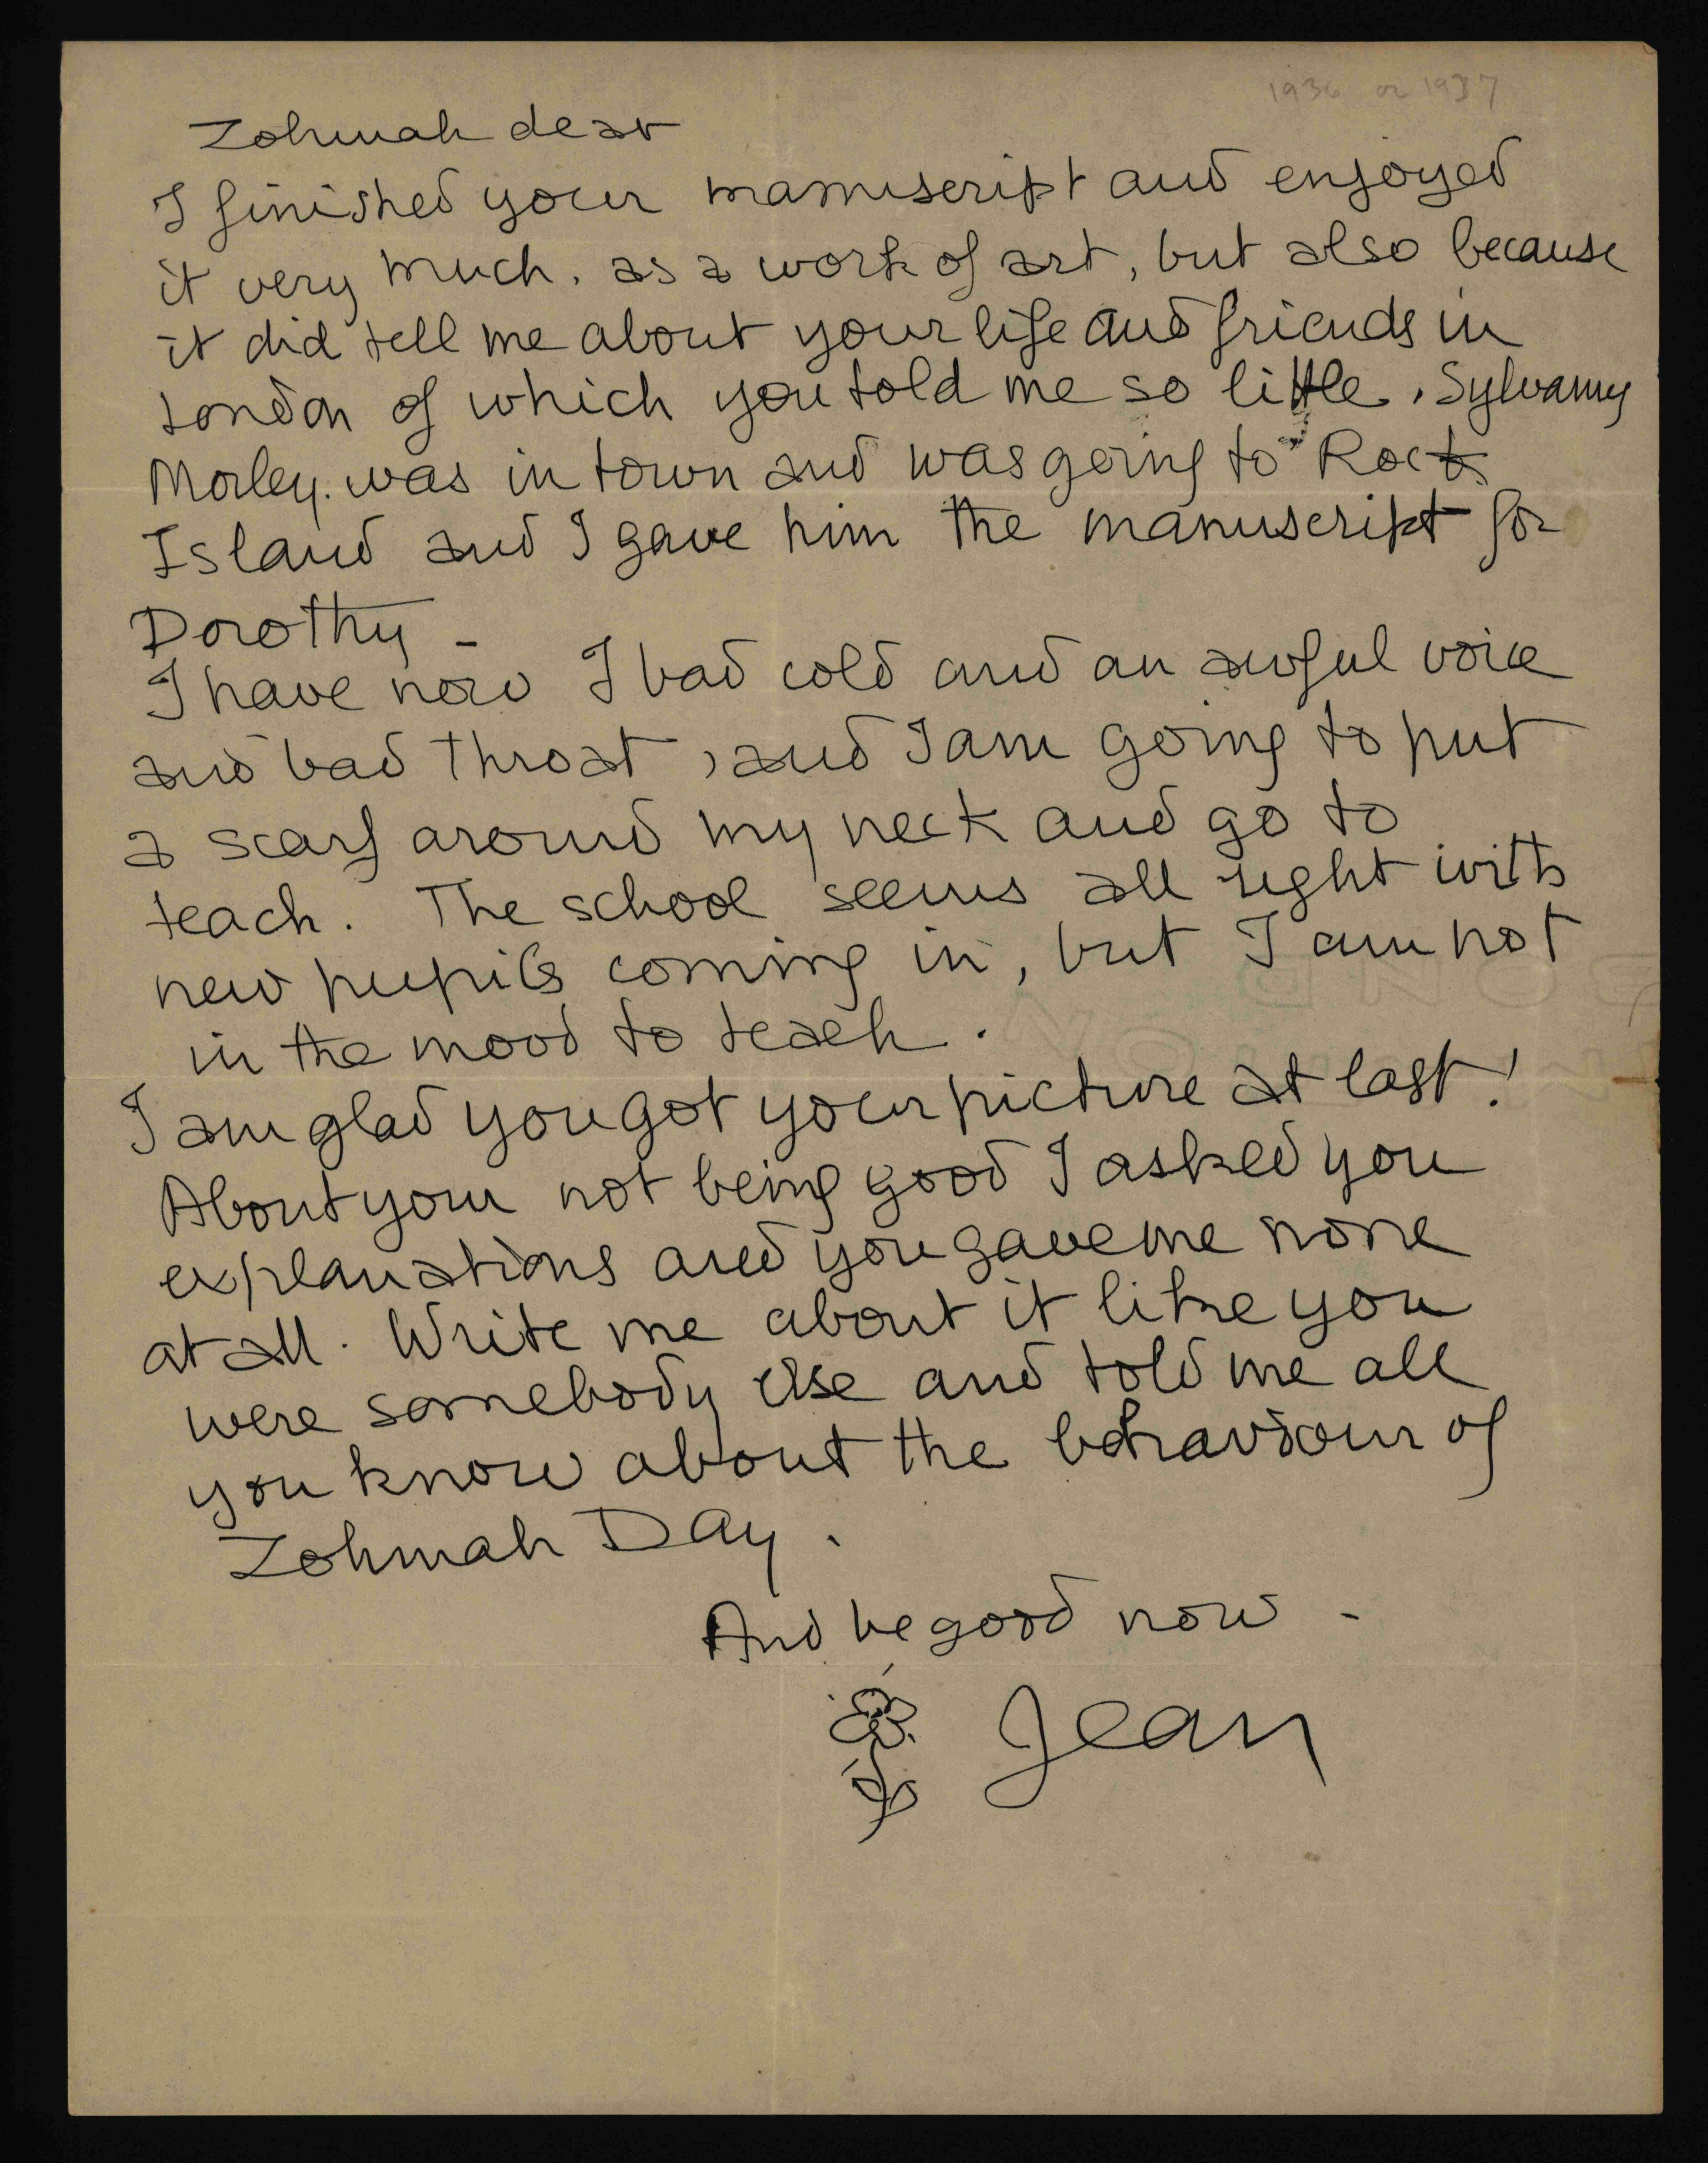 1936 or 1937
Zohmah dear
I finished your manuscript and enjoyed
it very much, as a work of art, but also because
it did tell me about your life and friends in
London of which you told me so little. Sylvanus
Morley. was in town and was going to Rock
Island and I gave him the manuscript for
Dorothy -
I have now I bad cold and an awful voice
and bad throat, and I am going to put
a scarf around my neck and go to
teach. The school seems all right with
new pupils coming in, but I am not
in the mood to teach.
I am glad you got your picture at last!
About your not being good I asked you
explanations and you gave me none
at all. Write me about it like you
were somebody else and told me all
you know about the behaviour of
Zohmah Day.
And be good now -
Jean